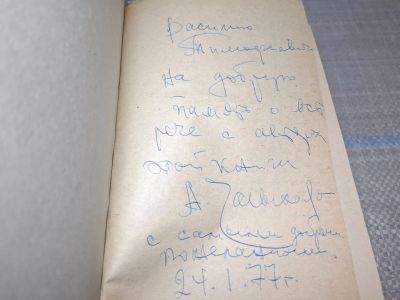 Василию
Тимофеевичу
на добрую
память о вст
рече с автором
этой книги
А
с самыми добрыми
пожеланиями.
24.1.77г.